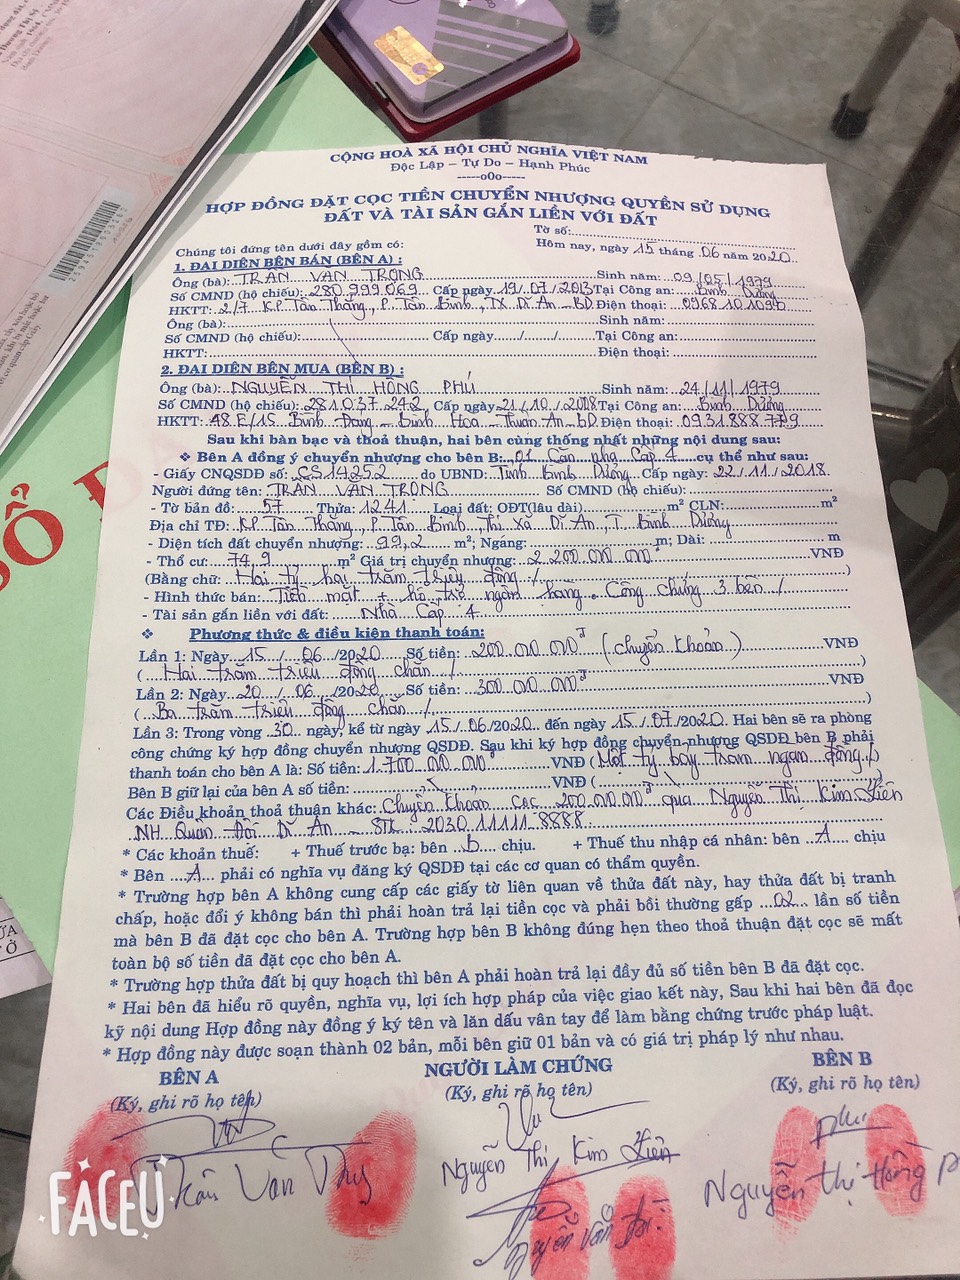 CỘNG HOÀ XÃ HỘI CHỦ NGHĨA VIỆT NAM
Độc Lập – Tự Do – Hạnh Phúc
-----o0o-----
HỢP ĐỒNG ĐẶT CỌC TIỀN CHUYỂN NHƯỢNG QUYỀN SỬ DỤNG
ĐẤT VÀ TÀI SẢN GẮN LIỀN VỚI ĐẤT
Tờ số:
Hôm nay, ngày 15 tháng 06 năm 2020
Chúng tôi đứng tên dưới đây gồm có:
1. ĐẠI DIỆN BÊN BÁN (BÊN A) :
Ông (bà): TRẦN VĂN TRỌNG Sinh năm: 09/05/1979
Số CMND (hộ chiếu): 280.999.069 Cấp ngày 19/07/2013 Tại Công an: Bình Dương
HKTT: 2/7 KP Tân Thắng, P. Tân Bình, TX Dĩ An - BD Điện thoại: 0968101090
Ông (bà): Sinh năm:
Số CMND (hộ chiếu): Cấp ngày / / Tại Công an:
HKTT: Điện thoại:
2. ĐẠI DIỆN BÊN MUA (BÊN B) :
Ông (bà): NGUYỄN THỊ HỒNG PHÚ Sinh năm: 24/11/1979
Số CMND (hộ chiếu): 281.037.242 Cấp ngày 21/10/2008 Tại Công an: Bình Dương
HKTT: 48E/15 Bình Đáng - Bình Hòa - Thuận An - BD Điện thoại: 0931.888.779
Sau khi bàn bạc và thoả thuận, hai bên cùng thống nhất những nội dung sau:
❖ Bên A đồng ý chuyển nhượng cho bên B: 01 Căn nhà Cấp 4 cụ thể như sau:
- Giấy CNQSDĐ số: CS14252 do UBND: Tỉnh Bình Dương Cấp ngày: 22/11/2018
Người đứng tên: TRẦN VĂN TRỌNG Số CMND (hộ chiếu):
- Tờ bản đồ: 57 Thửa: 1241 Loại đất: OĐT(lâu dài) m² CLN: m²
Địa chỉ TĐ: KP Tân Thắng, P. Tân Bình, Thị Xã Dĩ An, T. Bình Dương
- Diện tích đất chuyển nhượng: 99,2 m²; Ngang: m; Dài: m
- Thổ cư: 74,9 m² Giá trị chuyển nhượng: 2.200.000.000 VNĐ
(Bằng chữ: Hai tỷ hai trăm triệu đồng /)
- Hình thức bán: Tiền mặt + hỗ trợ ngân hàng. Công chứng 3 bên /
- Tài sản gắn liền với đất: Nhà Cấp 4
❖ Phương thức & điều kiện thanh toán:
Lần 1: Ngày 15/06/2020 Số tiền: 200.000.000đ (chuyển khoản) VNĐ
(Hai trăm triệu đồng chẵn /)
Lần 2: Ngày 20/06/2020 Số tiền: 300.000.000đ VNĐ
(Ba trăm triệu đồng chẵn /)
Lần 3: Trong vòng 30 ngày, kể từ ngày 15/06/2020 đến ngày 15/07/2020. Hai bên sẽ ra phòng
công chứng ký hợp đồng chuyển nhượng QSDĐ. Sau khi ký hợp đồng chuyển nhượng QSDĐ bên B phải
thanh toán cho bên A là: Số tiền: 1.700.000.000đ VNĐ (Một tỷ bảy trăm ngàn đồng)
Bên B giữ lại của bên A số tiền: VNĐ (
Các Điều khoản thoả thuận khác: Chuyển khoản cọc 200.000.000đ qua Nguyễn Thị Kim Liên
NH Quân Đội Dĩ An - STK: 2030.11111.8888
* Các khoản thuế: + Thuế trước bạ: bên B chịu. + Thuế thu nhập cá nhân: bên A chịu
* Bên A phải có nghĩa vụ đăng ký QSDĐ tại các cơ quan có thẩm quyền.
* Trường hợp bên A không cung cấp các giấy tờ liên quan về thửa đất này, hay thửa đất bị tranh
chấp, hoặc đổi ý không bán thì phải hoàn trả lại tiền cọc và phải bồi thường gấp 02 lần số tiền
mà bên B đã đặt cọc cho bên A. Trường hợp bên B không đúng hẹn theo thoả thuận đặt cọc sẽ mất
toàn bộ số tiền đã đặt cọc cho bên A.
* Trường hợp thửa đất bị quy hoạch thì bên A phải hoàn trả lại đầy đủ số tiền bên B đã đặt cọc.
* Hai bên đã hiểu rõ quyền, nghĩa vụ, lợi ích hợp pháp của việc giao kết này, Sau khi hai bên đã đọc
kỹ nội dung Hợp đồng này đồng ý ký tên và lăn dấu vân tay để làm bằng chứng trước pháp luật.
* Hợp đồng này được soạn thành 02 bản, mỗi bên giữ 01 bản và có giá trị pháp lý như nhau.
BÊN A NGƯỜI LÀM CHỨNG BÊN B
(Ký, ghi rõ họ tên) (Ký, ghi rõ họ tên) (Ký, ghi rõ họ tên)
Trần Văn
Nguyễn Thị Kim Liên
Nguyễn Thị Hồng P
Nguyễn Văn
SỔ Đ
FACEU